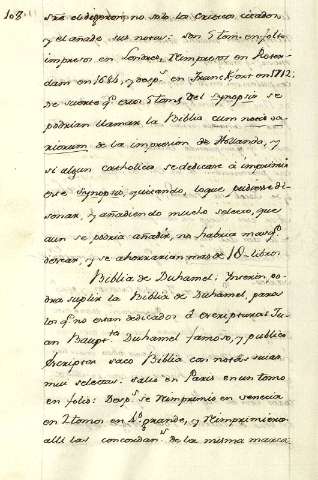 108
se el dixeron no solo los Criticos citados,
y el añade sus notas: son 5 tom. en folio
impresos en Londres, Reimpresos en Roter-
dam en 1684, y desp.s en Francfort en 1712;
de suerte q.e esos 5 tom.s del Synopsis se
podrian llamar la Biblia cum notis va-
riorum de la impresion de Hollanda, y
si algun catholico se dedicase á imprimir
ese Synopsis, quitando, loque pudiese di-
sonar, y añadiendo mucho selecto, que
aun se podria añadir, no habria mas q.e
desear, y se ahorrarian mas de 18 libros
Biblia de Duhamel. Interin po-
dra suplir la Biblia de Duhamel, para
los q.e no estan dedicados á Escripturas: Ju-
an Baup.ta Duhamel famoso, y publico
Escriptor saco Biblia con notas suias
mui selectas: salio en Paris en un tomo
en folio: Desp.s se Reimprimio en venecia
en 2 tomos en 4.o grande, y Reimprimieron
alli las concordan.s de la misma marca